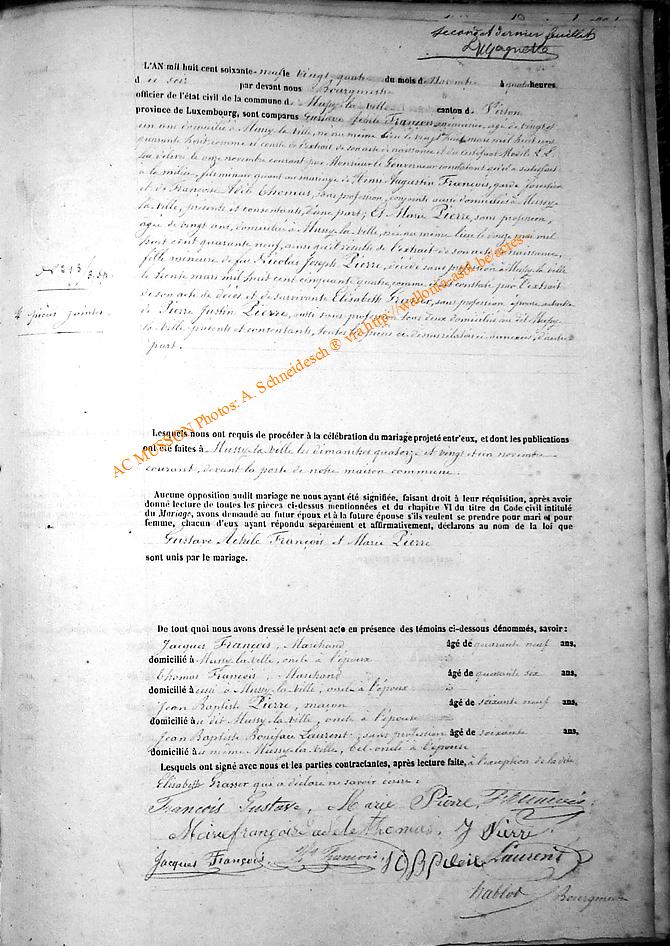 second et dernier feuillet
L'AN mil huit cent soixante-neuf le vingt quatre du mois de Novembre à quatre heures
d u soir par devant nous Bourgmestre
officier de l'état civil de la commune d Mussy-la-ville canton d Virton
province de Luxembourg, sont comparus Gustave Achile François âgé de vingt et
un ans domicilié à Mussy-la-ville, né au même lieu le vingt huit mars mil huit cent
quarante huit comme il conste de l'extrait de son acte de naissance et du certificat Modèle L.L.
lui délivré le onze novembre courant par Monsieur le Gouverneur constatant qu'il a satisfait
à la milice, fils mineur quant au mariage de Henri Augustin François, garde forestier
et de Françoise Adèle Thomas, sans profession, conjoints aussi domiciliés à Mussy-
la-ville, présents et consentants, d'une part; Et Marie Pierre, sans profession,
âgée de vingt ans, domiciliée à Mussy-la-ville, née au même lieu le douze mai mil
huit cent quarante neuf, ainsi qu'il résulte de l'extrait de son acte de naissance,
fille mineure de feu Nicolas Joseph Pierre, décédé sans profession à Mussy-la-ville
le trente mars mil huit cent cinquante quatre, comme il est constaté par l'extrait
de son acte de décès et de survivante Elisabeth Grasser, sans profession épouse actuelle
de Pierre Justin Pierre, aussi sans profession tous deux domiciliés au dit Mussy-
la-ville présents et consentants, toutes les pièces ci-dessus relatées annexées, d'autre
part.
N° 213
4 pièces jointes
AC MUSSON Photos: A. Schneidesch ® via http://wallonica.asbl.be/actes
Lesquels nous ont requis de procéder à la célébration du mariage projeté entr'eux, et dont les publications
ont été faites à Mussy-la-ville les dimanches quatorze et vingt et un novembre
courant, devant la porte de notre maison commune.
Aucune opposition audit mariage ne nous ayant été signifiée, faisant droit à leur réquisition, après avoir
donné lecture de toutes les pièces ci-dessus mentionnées et du chapitre VI du titre du Code civil intitulé
du Mariage, avons demandé au futur époux et à la future épouse s'ils veulent se prendre pour mari et pour
femme, chacun d'eux ayant répondu séparément et affirmativement, déclarons au nom de la loi que
Gustave Achile François et Marie Pierre
sont unis par le mariage.
De tout quoi nous avons dressé le présent acte en présence des témoins ci-dessous dénommés, savoir :
Jacques François, Marchand âgé de quarante neuf ans,
domicilié à Mussy-la-ville, oncle à l'époux
Thomas François, Marchand âgé de quarante six ans,
domicilié à aussi à Mussy-la-ville, oncle à l'époux
Jean Baptiste Pierre, maçon âgé de soixante neuf ans,
domicilié au dit Mussy-la-ville, oncle à l'épouse
Jean Baptiste Boniface Laurent, sans profession âgé de soixante ans,
domicilié au même Mussy-la-ville, bel-oncle à l'épouse
Lesquels ont signé avec nous et les parties contractantes, après lecture faite, à l'exception de la dite
Elisabeth Grasser qui a déclaré ne savoir écrire :
François Gustave, Marie Pierre François
Marie françoise adele thomas, J Pierre
Jacques François, François, Laurent
Bourgmestre